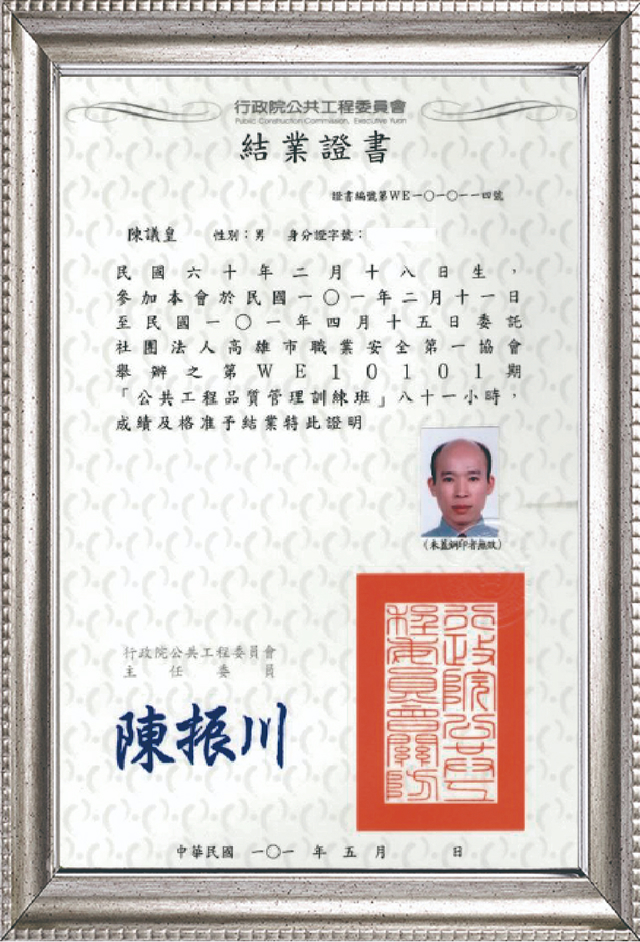 行政院公共工程委員會
Public Construction Commission, Executive Yuan
結業證書
證書編號第WE一○一○一一四號
陳議皇 性別：男 身分證字號：
民國六十年二月十八日生，
參加本會於民國一○一年二月十一日
至民國一○一年四月十五日委託
社團法人高雄市職業安全第一協會
舉辦之第WE10101期
「公共工程品質管理訓練班」八十一小時，
成績及格准予結業特此證明
(未蓋鋼印者無效)
行政院公共工程委員會
主任委員
陳振川
行政院公共工
程委員會關防
中華民國 一○一 年 五 月 日